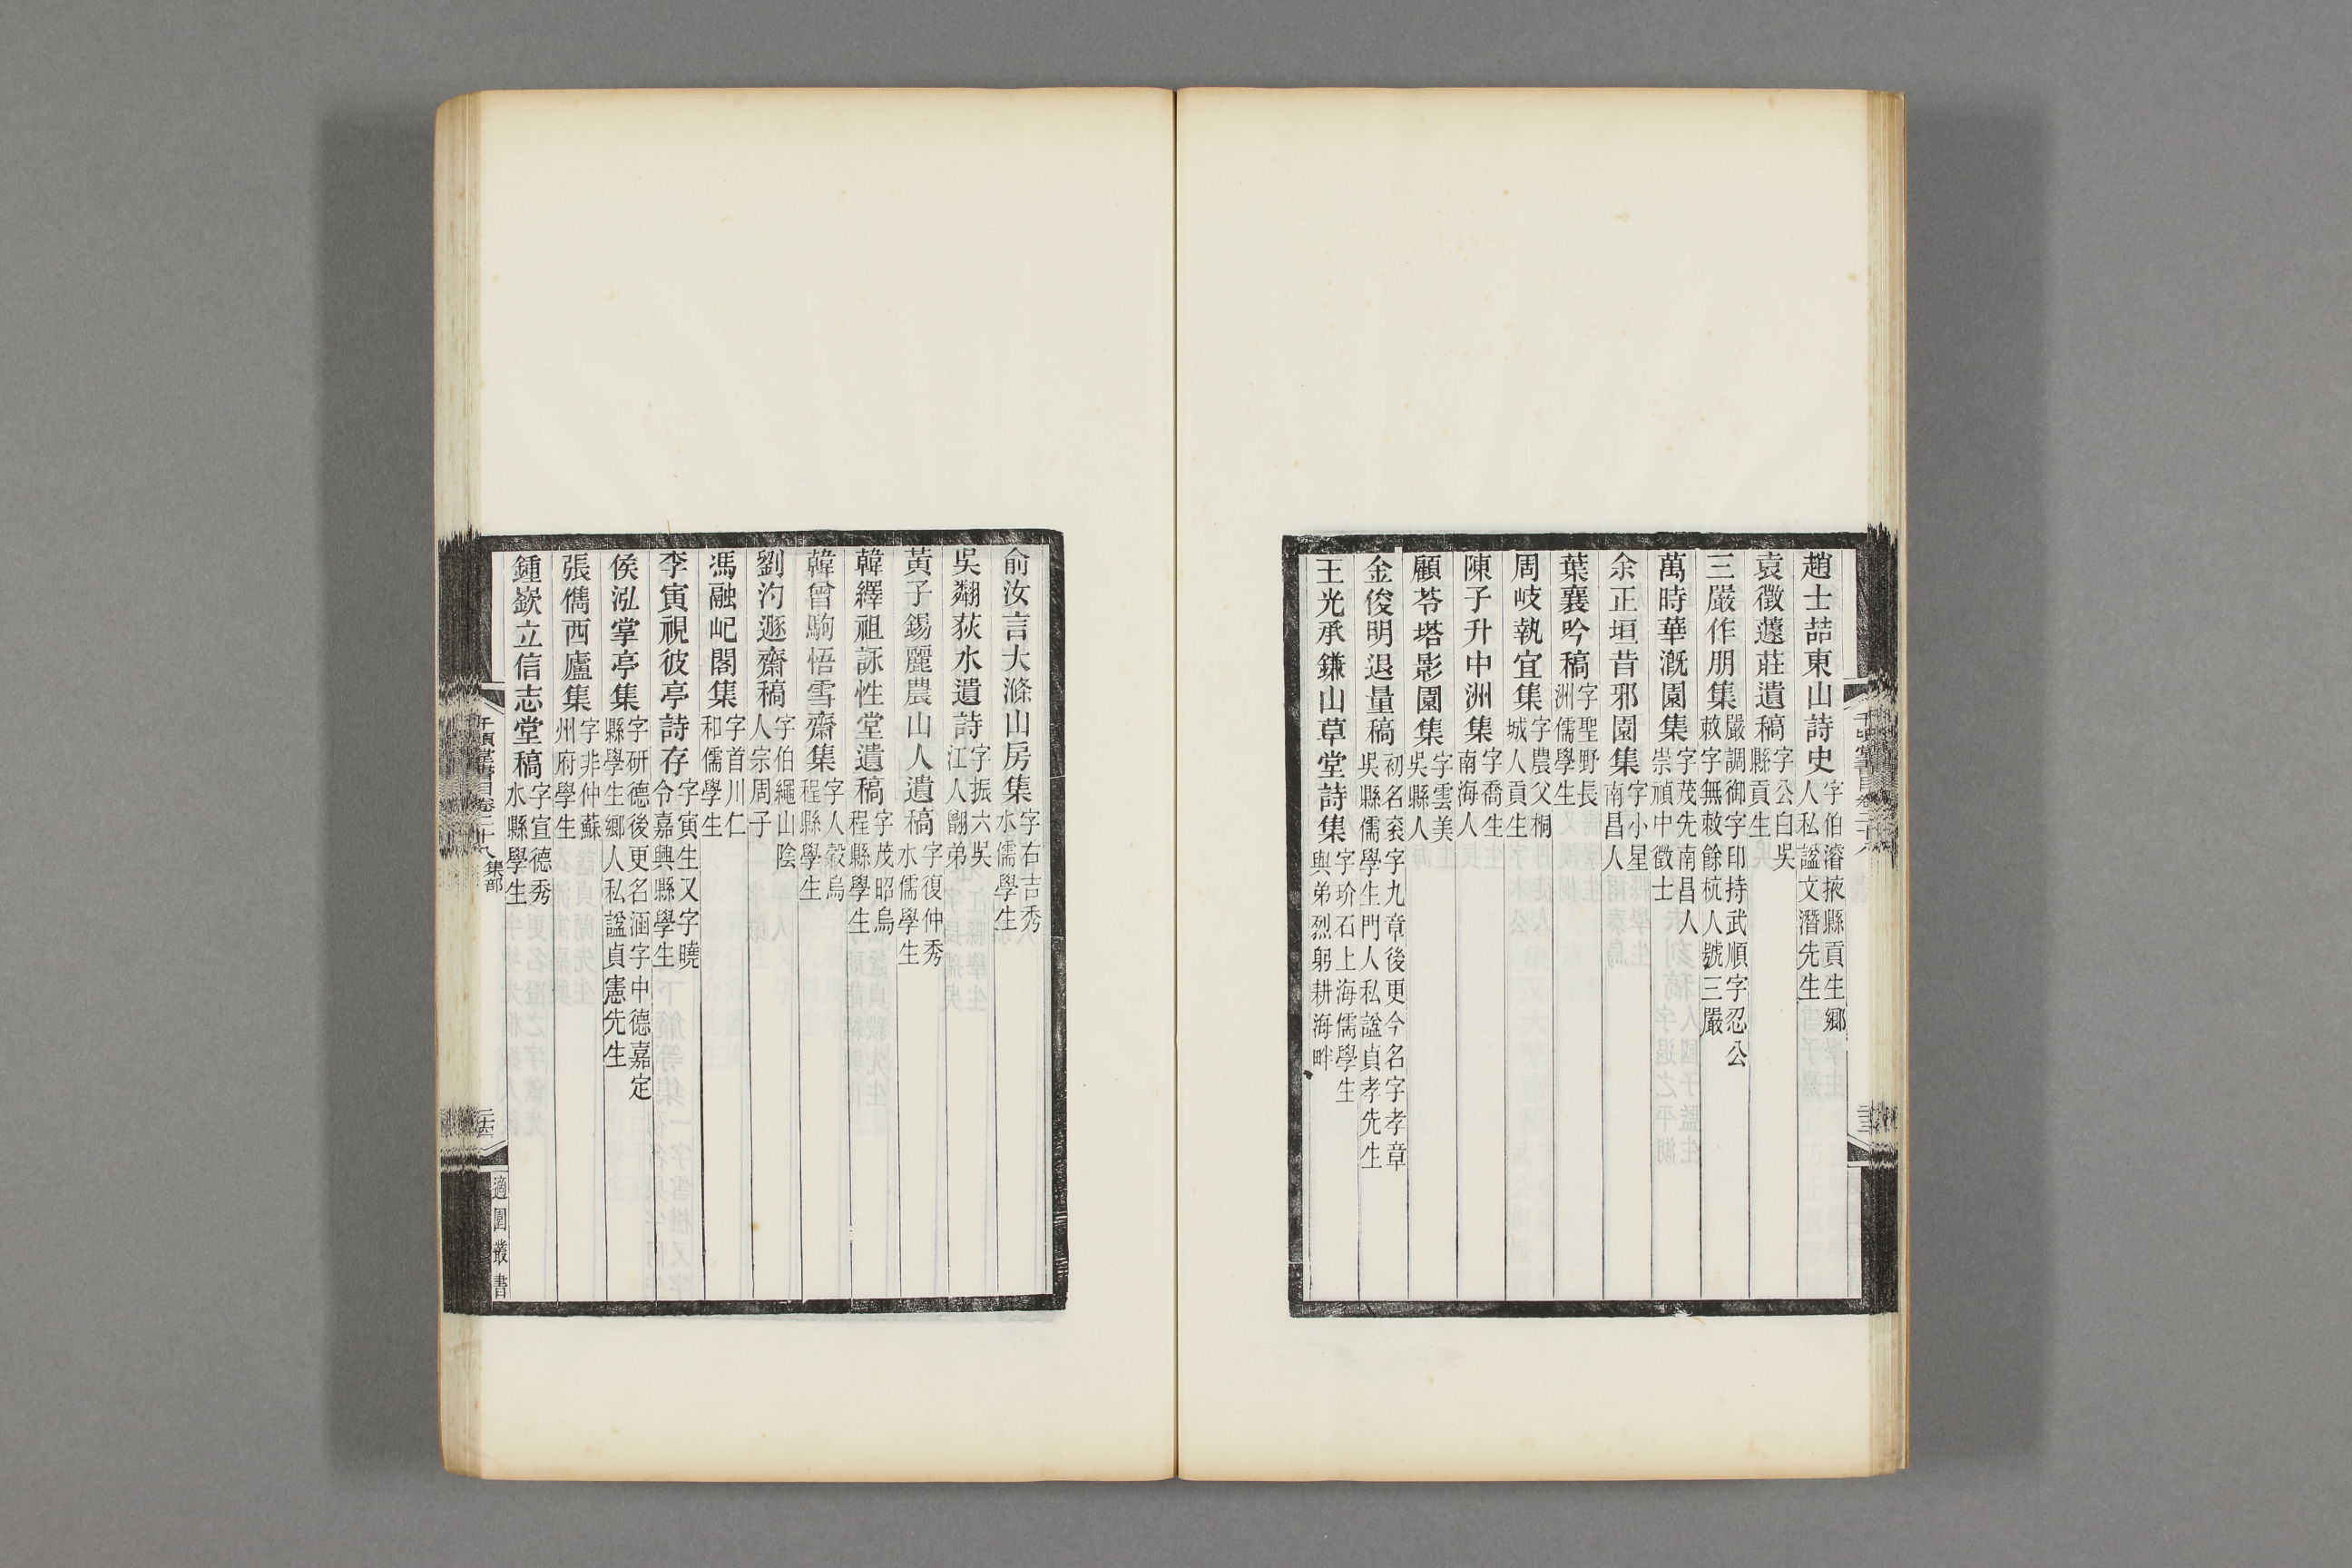 趙士喆東山詩史字伯濬掖縣貢生鄉人私諡文潛先生
袁徵蘧莊遺稿字公白吳縣貢生
三嚴作朋集嚴調御字印持武順字忍公敕字無敕餘杭人號三嚴
萬時華溉園集字茂先南昌人崇禎中徵士
余正垣昔邪園集字小星南昌人
葉襄吟稿字聖野長洲儒學生
周岐執宜集字農父桐城人貢生
陳子升中洲集字喬生南海人
顧苓塔影園集字雲美吳縣人
金俊明退量稿初名袞字九章後更今名字孝章吳縣儒學生門人私諡貞孝先生
王光承鎌山草堂詩集字玠石上海儒學生與弟烈躬耕海畔
俞汝言大滌山房集字右吉秀水儒學生
吳翷荻水遺詩字振六吳江人翻弟
黃子錫麗農山人遺稿字復仲秀水儒學生
韓繹祖詠性堂遺稿字茂昭烏程縣學生
韓曾駒悟雪齋集字人縠烏程縣學生
劉汋遯齋稿字伯繩山陰人宗周子
馮融屺閣集字首川仁和儒學生
李寅視彼亭詩存字寅生又字曉令嘉興縣學生
侯泓掌亭集字研德後更名涵字中德嘉定縣學生鄉人私諡貞憲先生
張儁西廬集字非仲蘇州府學生
鍾嶔立信志堂稿字宣德秀水縣學生
千頃堂書目卷二十八 集部
適園叢書